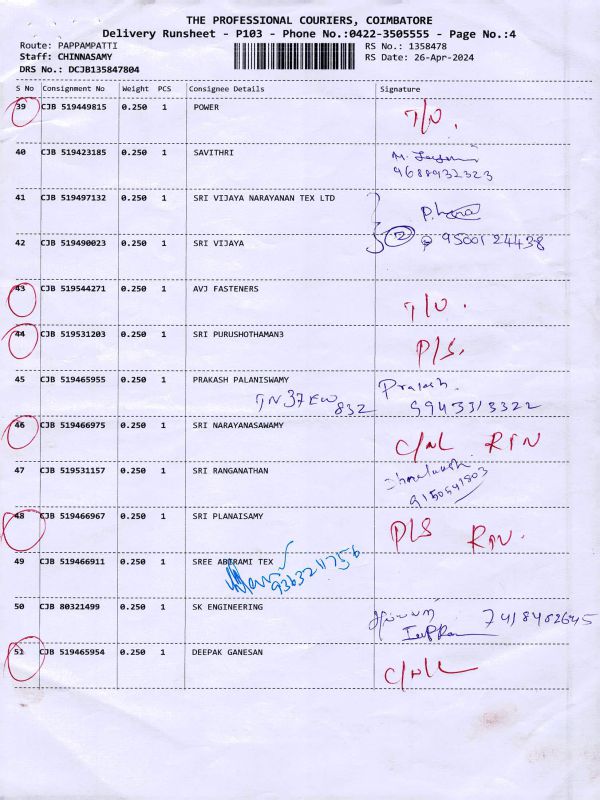 THE PROFESSIONAL COURIERS, COIMBATORE
Delivery Runsheet - P103 - Phone No.:0422-3505555 - Page No.:4
Route: PAPPAMPATTI RS No.: 1358478
Staff: CHINNASAMY RS Date: 26-Apr-2024
DRS No.: DCJB135847804
S No Consignment No Weight PCS Consignee Details Signature
39 CJB 519449815 0.250 1 POWER T/O.
40 CJB 519423185 0.250 1 SAVITHRI
9688932323
41 CJB 519497132 0.250 1 SRI VIJAYA NARAYANAN TEX LTD
42 CJB 519490023 0.250 1 SRI VIJAYA 2 9500124438
43 CJB 519544271 0.250 1 AVJ FASTENERS T/O.
44 CJB 519531203 0.250 1 SRI PURUSHOTHAMAN3 P/S.
45 CJB 519465955 0.250 1 PRAKASH PALANISWAMY Prakash.
TN37EW 832 9943313322
46 CJB 519466975 0.250 1 SRI NARAYANASAWAMY C/NL RTN
47 CJB 519531157 0.250 1 SRI RANGANATHAN
9150541803
48 CJB 519466967 0.250 1 SRI PLANAISAMY P/S RTN.
49 CJB 519466911 0.250 1 SREE ABIRAMI TEX
9363211756
50 CJB 80321499 0.250 1 SK ENGINEERING 7418402645
51 CJB 519465954 0.250 1 DEEPAK GANESAN C/NL